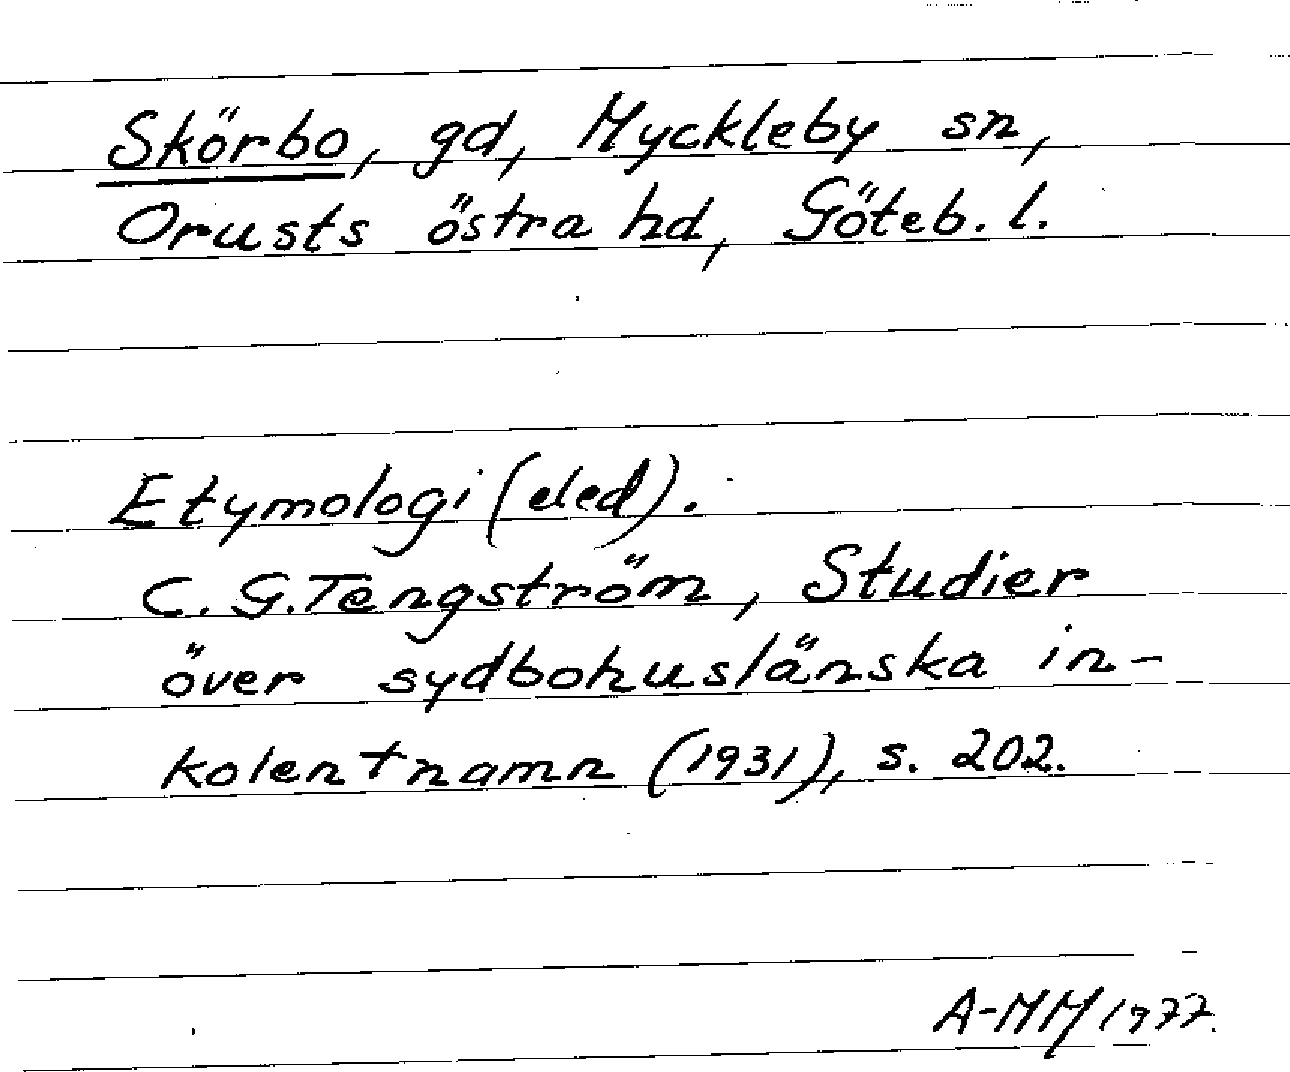 Skörbo, gd, Myckleby sn,
Orusts östra hd, Göteb. l.
Etymologi (eled).
C. G. Tengström, Studier
över sydbohuslänska in-
kolentnamn (1931), s. 202.
A-MM 1977.